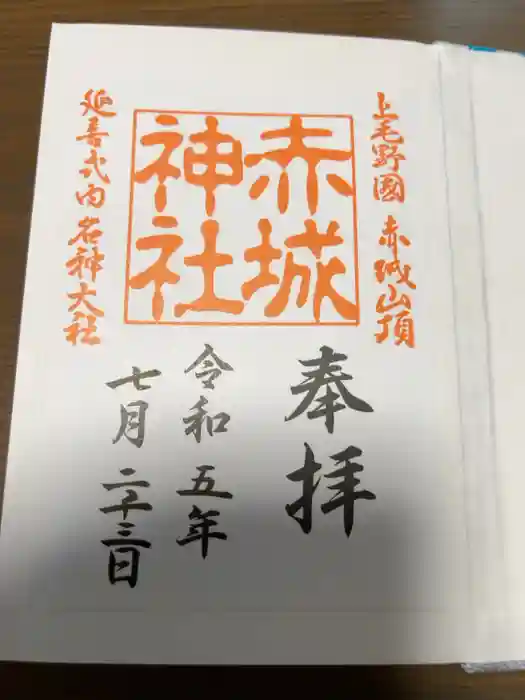 上毛野國 赤城山頂
赤城
神社
延喜式内 名神大社
奉拝
令和五年
七月二十三日